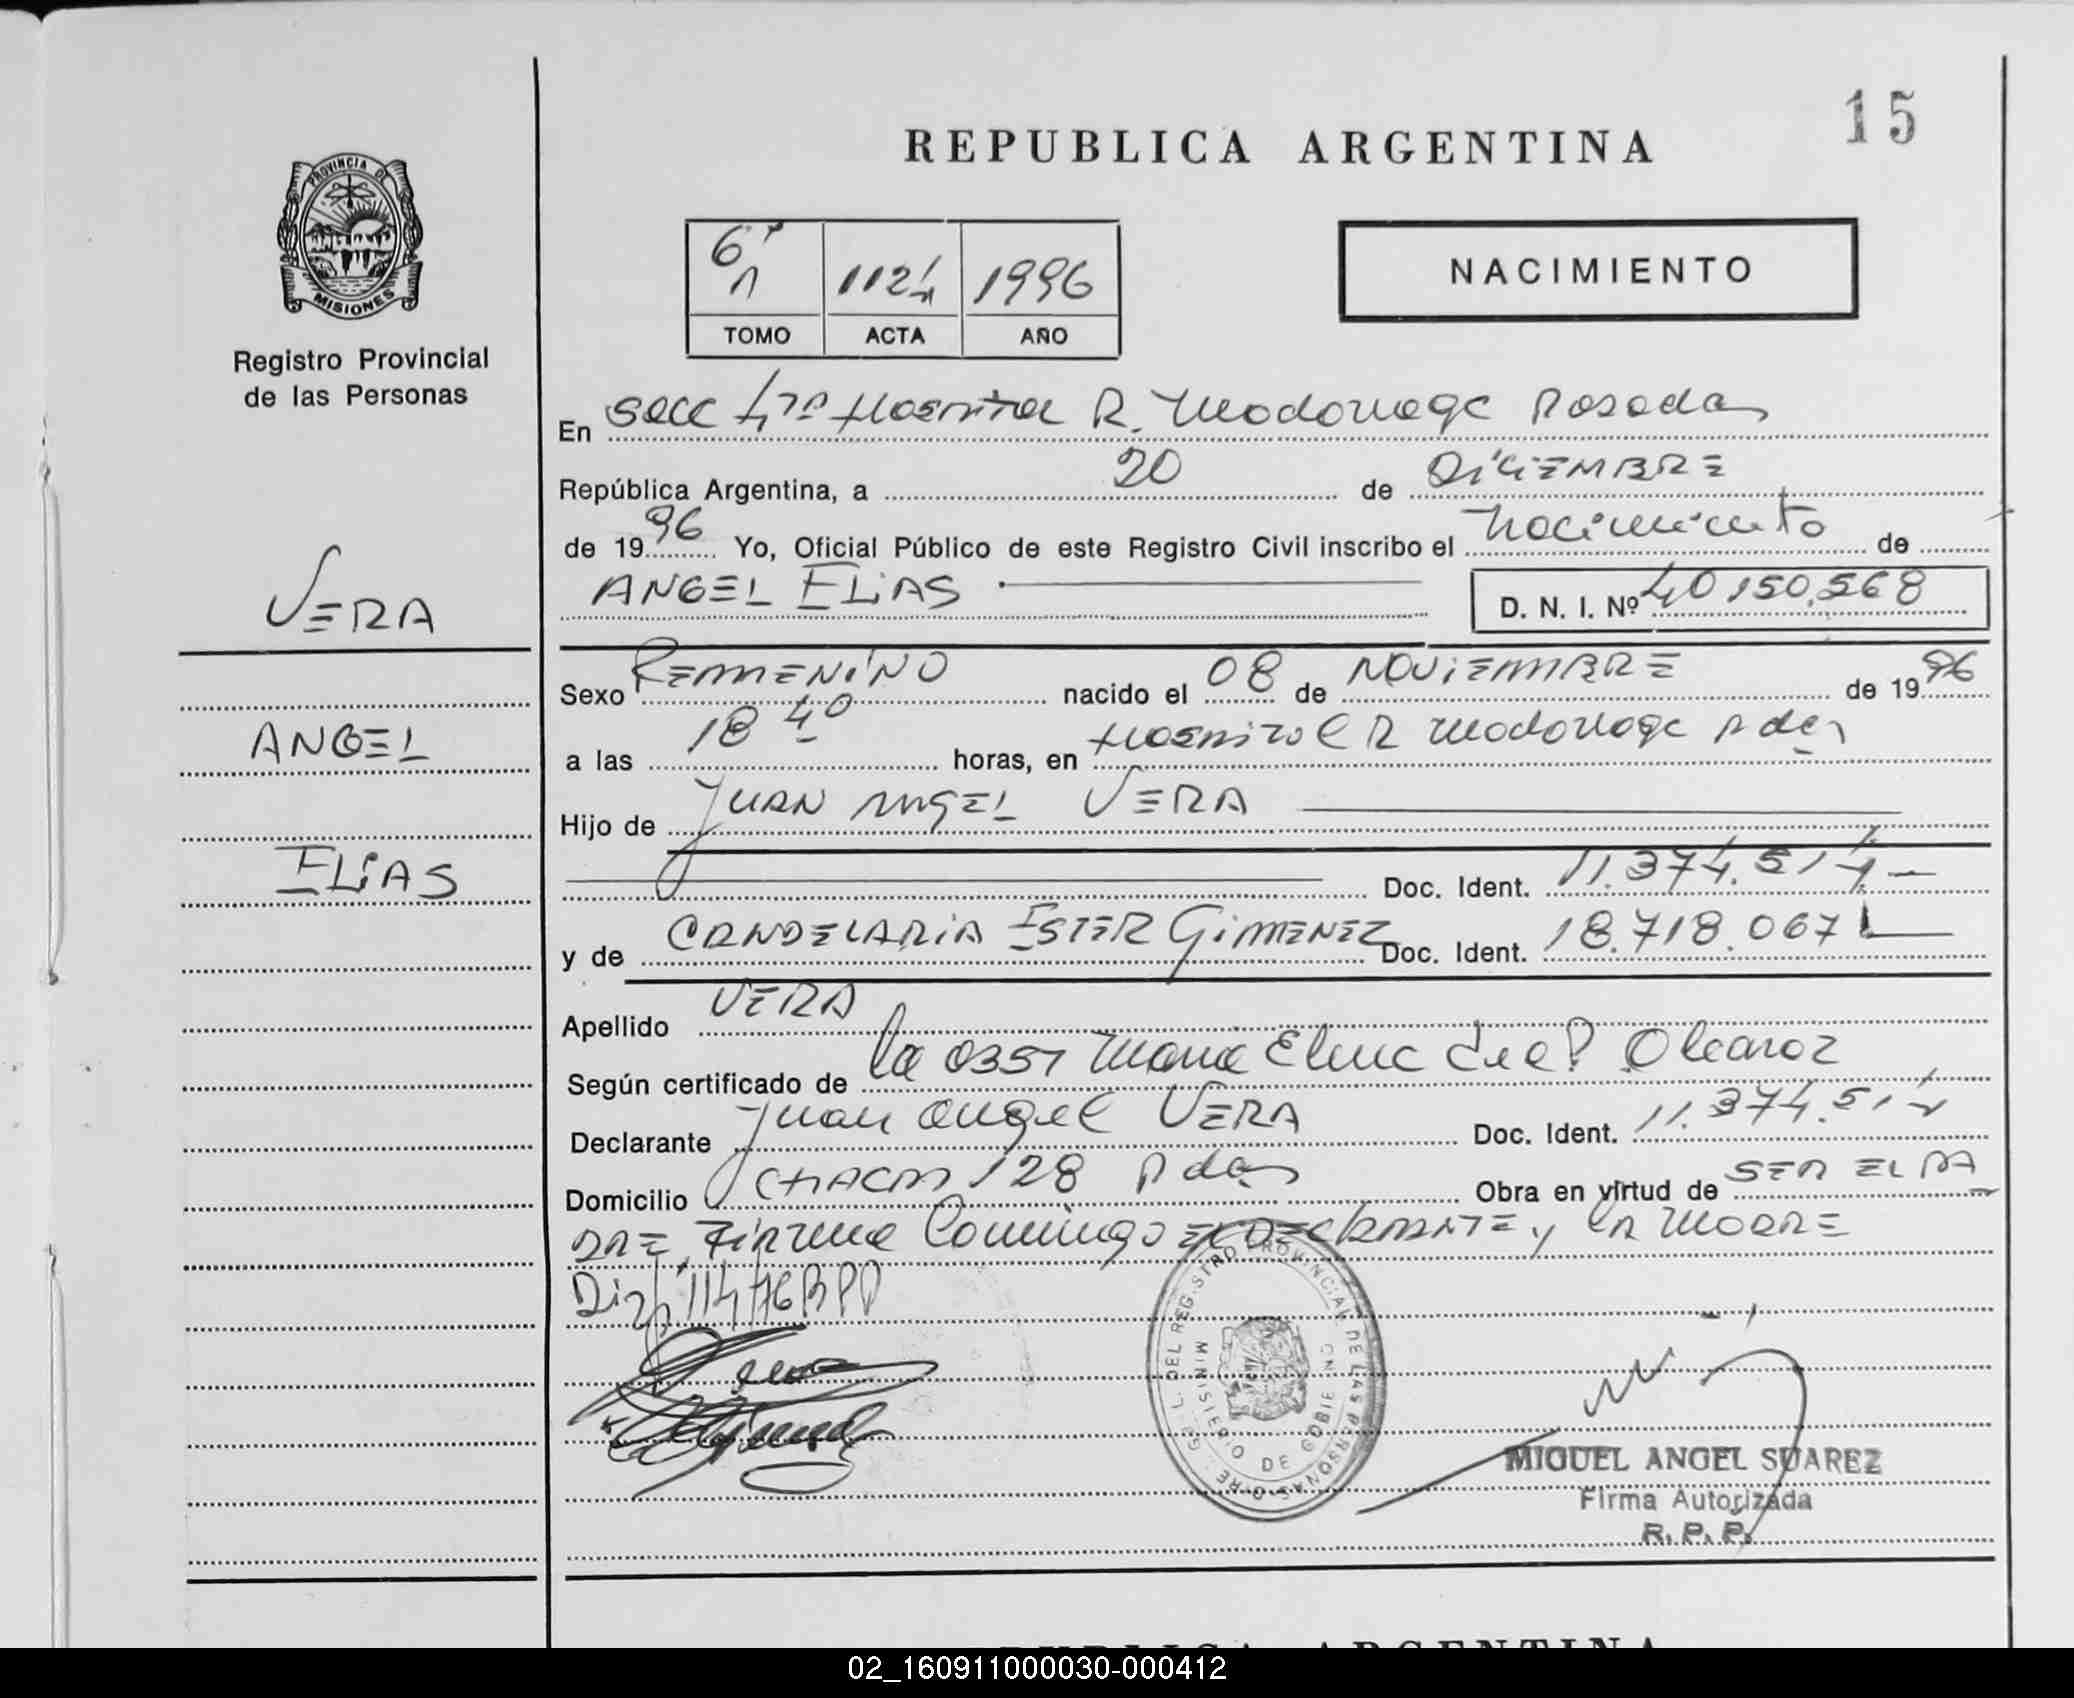 15
REPUBLICA ARGENTINA
PROVINCIA DE
MISIONES
Registro Provincial
de las Personas
6º
1
1124
1996
TOMO ACTA AÑO
NACIMIENTO
En Secc 4ta Hospital R. Madariaga Posadas
República Argentina, a 20 de DICIEMBRE
de 1996 Yo, Oficial Público de este Registro Civil inscribo el nacimiento de
ANGEL ELIAS
D. N. I. Nº 40,150,568
VERA
ANGEL
ELIAS
Sexo FEMENINO nacido el 08 de NOVIEMBRE de 1996
a las 18 40 horas, en Hospital R Madariaga Pdas
Hijo de JUAN ANGEL VERA
Doc. Ident. 11.374.514.
y de CANDELARIA ESTER GIMENEZ Doc. Ident. 18.718.067
Apellido VERA
Según certificado de la 0351 Maria Elena del P. Alcaraz
Declarante Juan Angel VERA Doc. Ident. 11.374.514
Domicilio CHACO 128 Pdas Obra en virtud de SER EL PA
DRE, Firma Conmigo EL DECLARANTE y LA MADRE
114/76
GRAL. DEL REGISTRO PROVINCIAL DE LAS PERSONAS DIRE
MINISTERIO DE GOBIE
MIGUEL ANGEL SUAREZ
Firma Autorizada
R. P. P.
REPUBLICA ARGENTINA
02_160911000030-000412